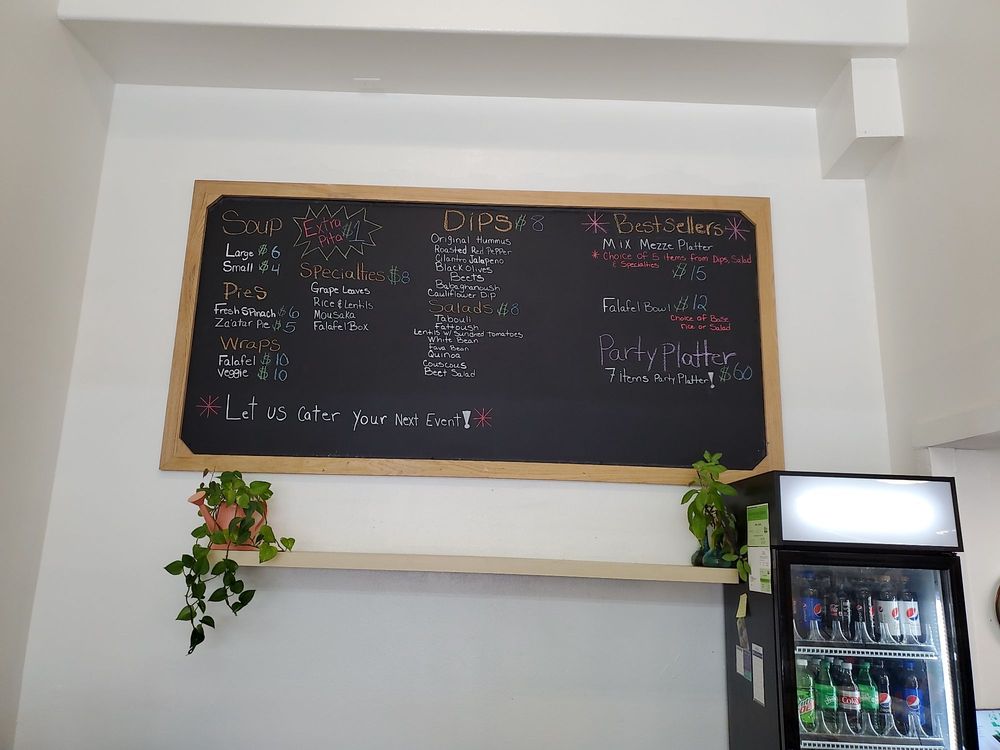 Soup
Large $6
Small $4
Extra
Pita $1
Pies
Fresh Spinach $6
Za'atar Pie $5
Wraps
Falafel $10
Veggie $10
Specialties $8
Grape Leaves
Rice & Lentils
Mousaka
Falafel Box
Dips $8
Original Hummus
Roasted Red Pepper
Cilantro Jalapeno
Black Olives
Beets
Babaganoush
Cauliflower Dip
Salads $8
Tabouli
Fattoush
Lentils w/ Sundried Tomatoes
White Bean
Fava Bean
Quinoa
Couscous
Beet Salad
Best Sellers
Mix Mezze Platter
* Choice of 5 items from Dips, Salad
& Specialties
$15
Falafel Bowl $12
Choice of Base
rice or Salad
Party Platter
7 items Party Platter! $60
* Let us cater your Next Event! *